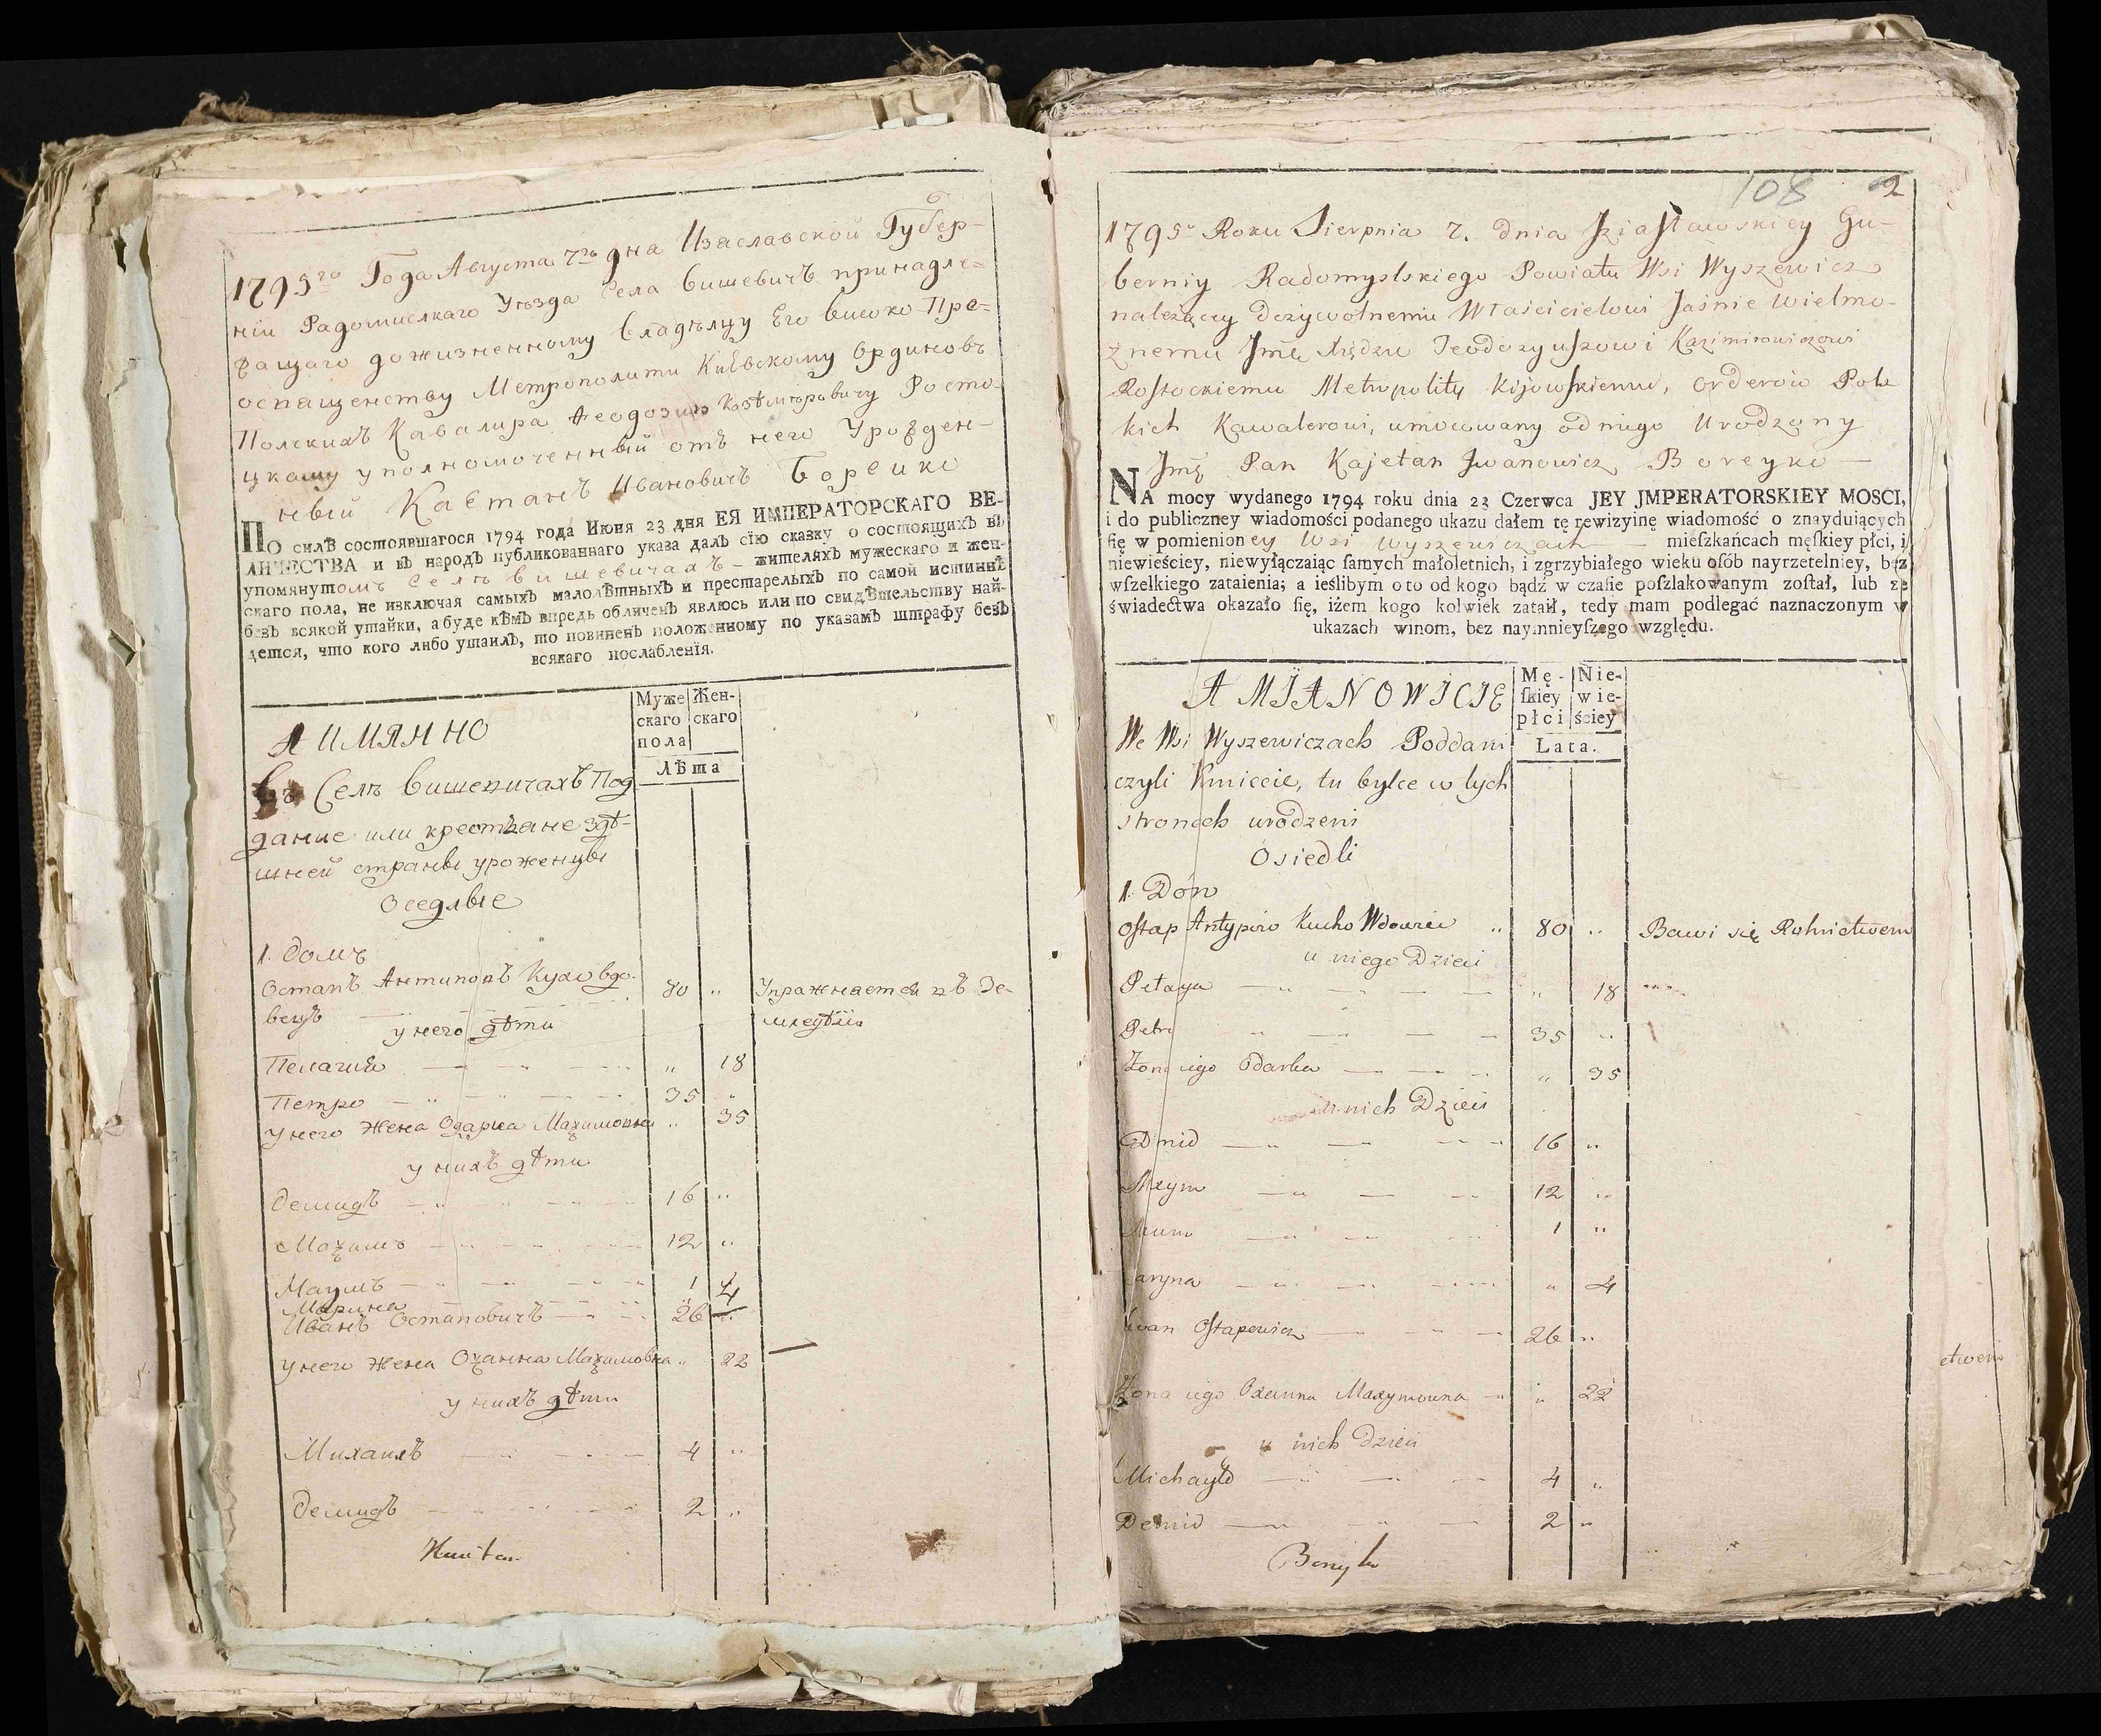 1795го Года Августа 7го дна Изаславской Губер-
нїи Радомислкаго Уѣзда Села Вишевичъ принадле-
жащаго дожизненному Владѣлцу Его Високо Пре-
освященству Метрополити Киевскому Ординовъ
Полскихъ Кавалира Феодозию КазѣмѣровичуРосто-
цкому уполномоченный отъ него Урожден-
ный Каетанъ Ивановичъ Борейко
ПО силѣ состоявшагося 1794 года Июня 23 дня ЕЯ ИМПЕРАТОРСКАГО ВЕ-
ЛИЧЕСТВА и въ народъ публикованнаго указа далъ сїю сказку о состоящихъ въ
упомянутомъ Селѣ Вишевичахъ — жителяхъ мужескаго и жен-
скаго пола, не изключая самыхъ малолѣтныхъ и престарелыхъ по самой истиннѣ
безъ всякой утайки, а буде кѣмъ впредь обличенъ явлюсь или по свидѣтельству най-
дется, что кого либо утаилъ, то повиненъ положенному по указамъ штрафу безъ
всякаго послабленїя.
А ИМЯННО
Муже
скаго
пола
Жен-
скаго
Лѣта
Въ Селѣ Вишевичахъ Под
дание или крестьане здѣ-
шней страны уроженцы
Оседлые
1. Домъ
Остапъ Антиповъ Кухо вдо- 80 „ Упражнается въ Зе-
вецъ мледѣлїи
у него дѣти
Пелагия „ 18
Петро 35 „
у него Жена Одарка Махимовна „ 35
у нихъ дѣти
Демидъ 16 „
Махимъ 12 „
Наумъ 1
Марина „ 4
Иванъ Остаповичъ 26 „
у него Жена Оханна Махимовна „ 22
у нихъ дѣти
Михаилъ 4 „
Демидъ 2 „
108 2
1795o Roku Sierpnia 7. dnia Jziasławskiey Gu-
berniy Radomyslskiego Powiatu Wsi Wyszewicz
należącey dożywotnemu Właścicielowi Jaśnie Wielmo-
żnemu Jmę Xiędzu Teodozyuszowi Kazimirowiczowi
Rostockiemu Metropolitę Kijowskiemu, orderow Pols
kich Kawalerowi, umocowany od niego Urodzony
Jmę Pan Kajetan Jwanowicz Boreyko —
NA mocy wydanego 1794 roku dnia 23 Czerwca JEY JMPERATORSKIEY MOSCI,
i do publiczney wiadomości podanego ukazu dałem tę rewizyinę wiadomość o znayduiących
ſię w pomienioney Wsi Wyszewiczach — mieſzkańcach męſkiey płci, i
niewieściey, niewyłączaiąc ſamych małoletnich, i zgrzybiałego wieku oſób nayrzetelniey, bez
wſzelkiego zataienia; a ieślibym o to od kogo bądź w czaſie poſzlakowanym zoſtał, lub ze
świadectwa okazało ſię, iżem kogo kolwiek zataił, tedy mam podlegać naznaczonym w
ukazach winom, bez naymnieyſzego względu.
A MIANOWICIE
Mę-
ſkiey
płci
Nie-
wie-
ściey
Lata.
We Wsi Wyszewiczach Poddani
czyli Kmiecie, tu bylce w tych
stronach urodzeni
Osiedli
1. Dom
Ostap Antypow Kucho Wdowiec „ 80 „ Bawi się Rolnictwem
u niego Dzieci
Pełagia „ 18
Petro 35 „
Żona iego Odarka „ 35
u nich Dzieci
Demid 16 „
Maxym 12 „
Naum 1 „
Maryna „ 4
Iwan Ostapowicz 26 „
Żona iego Oxanna Maxymowna „ 22
u nich Dzieci
Michayło 4 „
Demid 2 „
Boreyko
ctwem